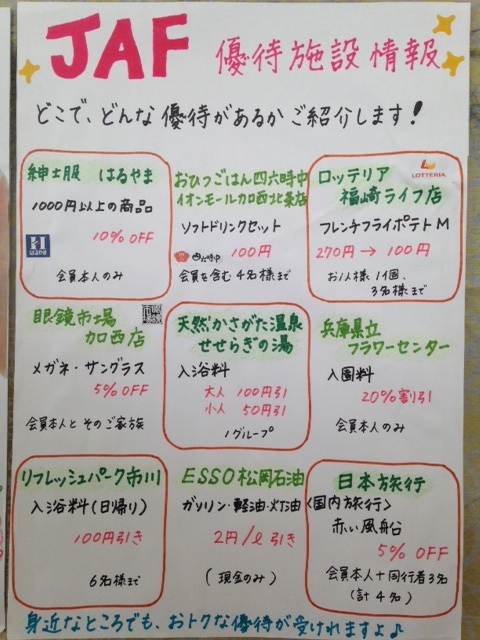 JAF 優待施設情報
どこで、どんな優待があるかご紹介します!
紳士服 はるやま
1000円以上の商品
10% OFF
はるやま
会員本人のみ
おひつごはん四六時中
イオンモール加西北条店
ソフトドリンクセット
四六時中 100円
会員を含む4名様まで
LOTTERIA
ロッテリア
福崎ライフ店
フレンチフライポテトM
270円 → 100円
お1人様1個、
3名様まで
眼鏡市場
加西店
メガネ・サングラス
5% OFF
会員本人とそのご家族
天然かさがた温泉
せせらぎの湯
入浴料
大人 100円引
小人 50円引
1グループ
兵庫県立
フラワーセンター
入園料
20%割引
会員本人のみ
リフレッシュパーク市川
入浴料(日帰り)
100円引き
6名様まで
ESSO松岡石油
ガソリン・軽油・灯油
2円/ℓ引き
(現金のみ)
日本旅行
<国内旅行>
赤い風船
5% OFF
会員本人+同行者3名
(計4名)
身近なところでも、おトクな優待が受けれますよ♪